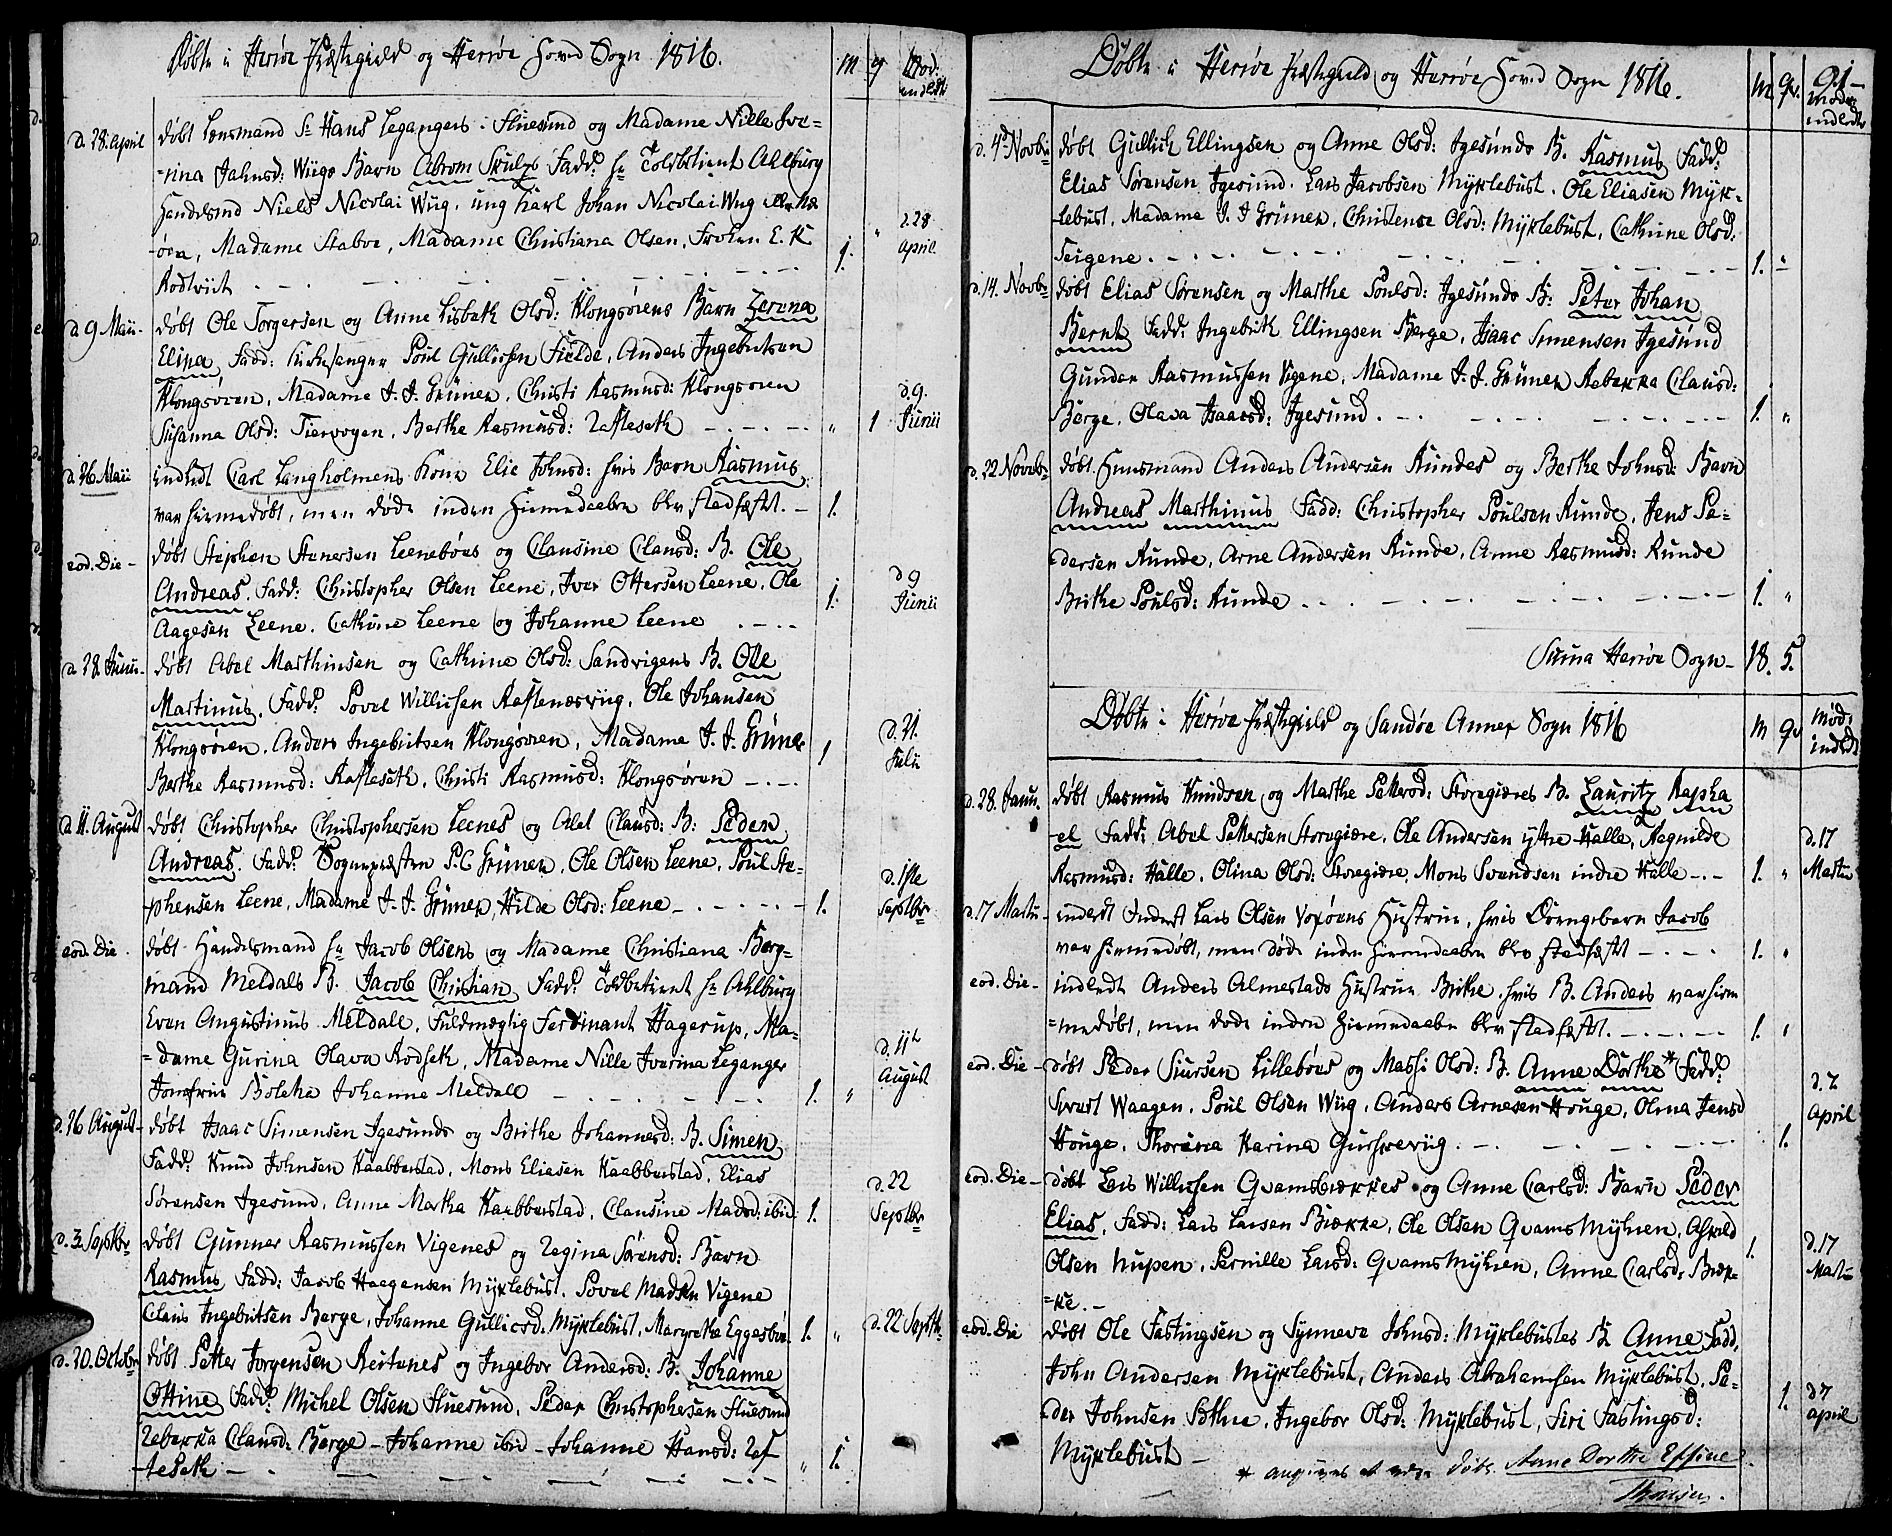 Døbte i Herøe Præstegield og Herrøe Hoved Sogn 1816.
M q Mod: indledt
d. 28. April døbt Lensmand Sr Hans Legangers i Fluesund og Madame Nille Ive-
-rina Jahnsd: Wiigs Barn Abrom Skulze Fadd: hr Toldbetient Ahlburg
Handelsmd Niels Nicolai Wiig, ung Karl Johan Nicolai Wiig
-øen, Madame Stabve, Madame Christiana Olsen, Frøken E. K.
Rodtvitt 1. " d. 28 April
d. 9 Maii- døbt Ole Torgersen og Anne Lisbeth Olsd: Klongsørens Barn Zerena
Elina, Fadd: Kirkesanger Poul Gullichsen Fielde, Anders Ingebritsen
Klongsøren, Madame J. J. Grüner, Christi Rasmusd: Klongsøren
Susanna Olsd: Tiervogen, Berthe Rasmusd: Rafteseth " 1 d. 9. Junii
d. 26 Maii indledt Carl Langholmens Kone Elie Johnsd: hvis Barn Rasmus
var hiemedøbt, men døde inden Hiemedaaben blev stadfæstet. 1.
eod. Die - døbt Stephen Stenersen Leenebøes og Clausine Clausd: B. Ole
Andreas. Fadd: Christopher Olsen Leene, Iver Ottersen Leene, Ole
Aagesen Leene. Cathrine Leene og Johanne Leene 1. d 9 Junii
d. 28. Junii- døbt Abel Marthinsen og Cathrine Olsd: Sandvigens B. Ole
Martinus. Fadd: Povel Willichsen Raftenæsviig, Ole Johansen
Klongsøren, Anders Ingebritsen Klongsøren, Madame J. J. Grüner
Berthe Rasmusd: Rafteseth, Christi Rasmusd: Klongsøren 1 d. 21. Julii
d 11. August døbt Christopher Christophersen Leenes og Alet Clausd: B: Peder
Andreas. Fadd: Sognepræsten P. C. Grüner, Ole Olsen Leene, Poul Ste-
phensen Leene, Madame J. J. Grüner, Hilde Olsd: Leene 1. d. 1ste Septbr
eod. Die. døbt Handelsmand hr Jacob Olsens og Madame Christiana Berg-
mand Meldals B. Jacob Christian, Fadd: Toldbetient hr Ahlburg
Even Augustinus Meldall, Fuldmægtig Ferdinant Hagerup, Ma-
=dame Gurina Olava Rodseth, Madame Nille Iverina Leganger
Jomfrue Boletha Johanne Meldall 1. " d. 11te August
d. 26 August- døbt Isaac Simensen Igesunds og Brithe Johannesd: B. Simen
Fadd: Knud Johnsen Kaabberstad, Mons Eliasen Kaabberstad, Elias
Sørensen Igesund, Anne Martha Kaabberstad, Clausine Madsd: ibid: 1. d. 22 Septbr
d. 3. Septbr døbt Gunner Rasmussen Vigenes og Regina Sørensd: Barn
Rasmus Fadd: Jacob Haagensen Myklebust, Povel Madsen Vigene
Claus Ingebritsen Berge, Johanne Gullicsd: Myklebust, Margrethe Eggesbøe 1. " d. 22 Septbr
d. 20. Octobr døbt Petter Jorgensen Reitenes og Ingebor Andersd: B. Johanne
Ottine, Fadd: Michel Olsen Fluesund, Peder Christophersen Fluesund
Rebekka Clausd: Berge - Johanne ibid - Johanne Hansd: Raf
-teseth " 1.
Døbte i Herøe Præstegield og Herrøe Hoved Sogn 1816.
M. Qv. 91- Moder indledt
d. 4de Novbr døbt Gullich Ellingsen og Anne Olsd: Igesunds B. Rasmus Fadd:
Elias Sørensen Igesund. Lars Jacobsen Myklebust. Ole Eliasen Myk-
-lebust, Madame J. J Grüner, Christense Olsd: Myklebust, Cathrine Olsd:
Teigene. 1. "
d. 14. Novbr døbt Elias Sørensen og Marthe Poulsd: Igesunds B: Peter Johan
Bernt Fadd: Ingebrit Ellingsen Berge, Isaac Simensen Igesund
Gunder Rasmussen Vigene, Madame J. J. Grüner Rebekka Clausd:
Berge. Olava Isaacsd: Igesund. 1. "
d. 22 Novebr døbt Huusmand Anders Andersen Rundes og Berthe Johnsd: Barn
Andreas Marthinus Fadd: Christopher Poulsen Runde, Jens Pe-
dersen Runde, Arne Andersen Runde, Anne Rasmusd: Runde
Brithe Poulsd: Runde 1. "
Suma Herøe Sogn- 18. 5.
Døbte i Herøe Præstegield og Sandøe Annex Sogn 1816
M Qv Mod: indledt
d. 28. Janu. døbt Rasmus Knudsen og Marthe Pettersd: Storegiæres B. Lauritz Rapha
-el Fadd: Abel Pettersen Storegiære, Ole Andersen ytre Halle, Ragnilde
Rasmusd: Halle. Olina Olsd: Storegiære, Mons Svendsen indre Halle 1. " d. 17 Martii
d. 17 Martii- indledt Inderst Lars Olsen Voxøens Hustrue, hvis Drengebarn Jacob
var hiemedøbt, men døde inden hiemedaaben blev stadfæstet 1. "
eod. Die- indledt Anders Almestads Hustrue Brithe, hvis B. Anders var hiem
=medøbt, men døde inden hiemedaaben blev stadfæstet. 1. "
eod. Die- døbt Peder Siursen Lillebøes og Massi Olsd: B. Anne Dorthe* Fadd:
Sivert Waagen, Poul Olsen Wiig, Anders Arnesen Houge, Olina Jensd
Houge. Thorena Karina Gurskeviig. 1. d. 7 April
eod. Die- døbt Lars Willichsen Qvamsbækkes og Anne Carlsd: Barn Peder
Elias, Fadd: Lars Larsen Bække, Ole Olsen Qvamsmyhren, Askild
Olsen Nupen, Pernille Larsd: Qvamsmyhren, Anne Carlsd: Bæk-
=ke. - 1. d. 17 Martii
eod. Die døbt Ole Fastingsen og Synneve Johnsd: Myklebustes B. Anne Fadd,
John Andersen Myklebust, Anders Abrahamsen Myklebust, Pe-
der Johnsen Sethre, Ingebor Olsd: Myklebust, Siri Fastingsd:
Myklebust - 1. d 7 April
* angives at være døbt Anne Dorthe Elsine.